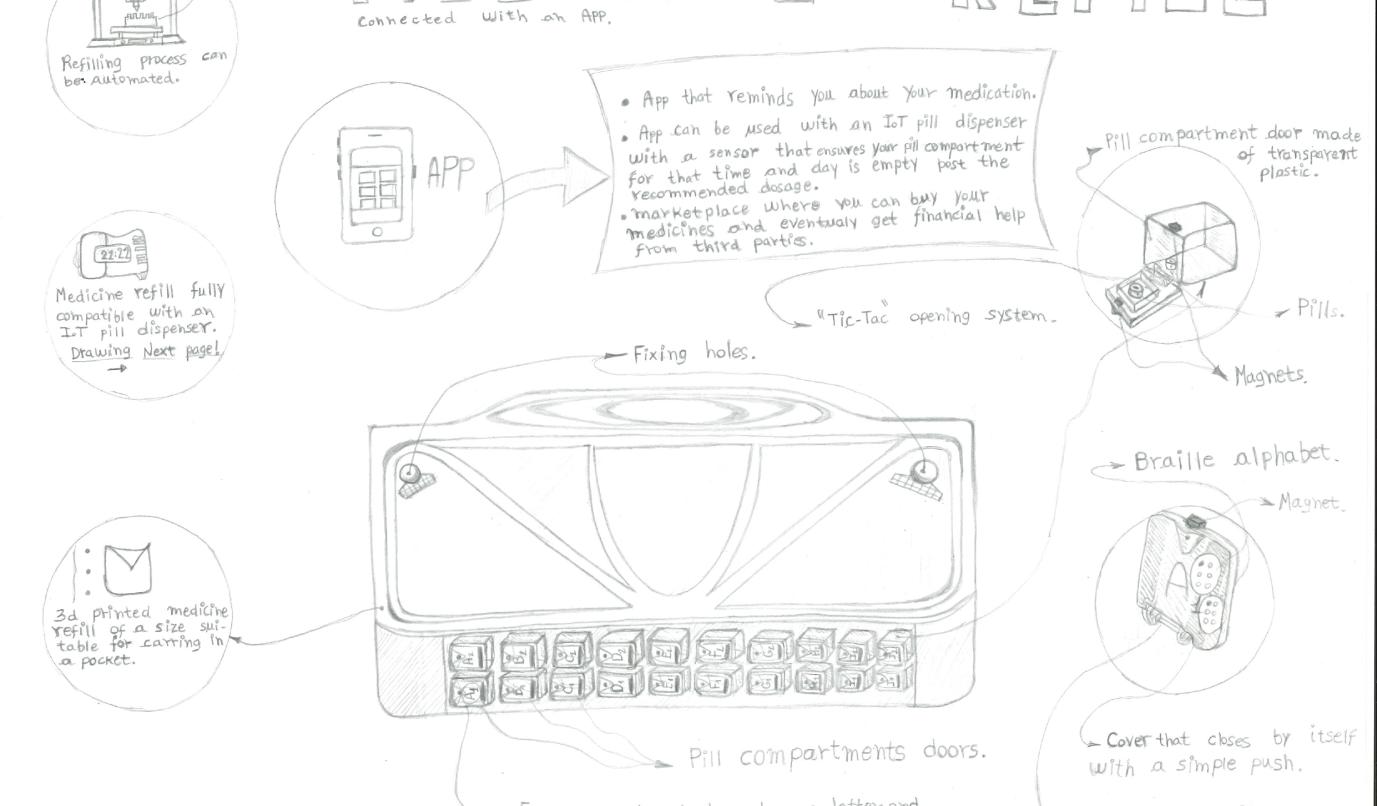 Connected with an App.
Refilling process can
be automated.
APP
• App that reminds you about your medication.
• App can be used with an IoT pill dispenser
with a sensor that ensures your pill compartment
for that time and day is empty post the
recommended dosage.
• marketplace where you can buy your
medicines and eventualy get financial help
from third parties.
Pill compartment door made
of transparent
plastic.
22:22
Medicine refill fully
compatible with an
IoT pill dispenser.
Drawing Next page!
"Tic-Tac" opening system.
Pills.
Magnets.
Fixing holes.
Braille alphabet.
Magnet.
3d printed medicine
refill of a size sui-
table for carring in
a pocket.
Pill compartments doors.
Cover that closes by itself
with a simple push.